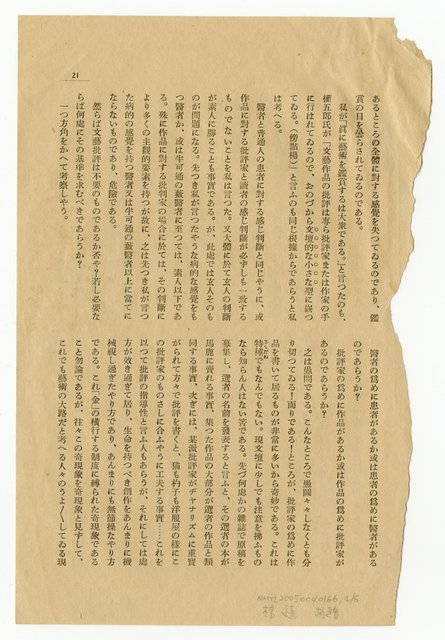 あるところの全體に對する感覺を失つてゐるのであり、鑑
賞の目を曇らされてゐるのである。
私が『眞に藝術を鑑賞するは大衆である。』と言つたのも、
權五郎氏が「文藝作品の批評は專ら批評家または作家の手
に行はれてゐるので、おのづから文壇的な小さな型に嵌つ
てゐる。(傍點楊)」と言ふのも同じ根據からであらうと私
は考へる。
醫者と普通人の患者に對する感じ判斷と同じやうに、或
作品に對する批評家と讀者の感じ判斷が必ずしも一致する
ものでないことを私は言つた。又大體に於て玄人の判斷
が素人に勝ることも事實である。が、此處では玄人そのも
のが問題になる。先つき私が言つたやうな病的な感覺をも
つ醫者か、或は半可通の藪醫者に至つては、素人以下であ
る。殊に作品に對する批判の場合に於ては、その判斷に
より多くの主觀的要素を持つが故に、之は先つき私が言つ
た病的の感覺を持つ醫者又は半可通の藪醫者以上に當てに
ならないものであり、危險である。
然らば文藝批評は不要のものであるか否や?若し必要な
らば何處にその基準を求むべきであらうか?
一つ方角をかへて考察しやう。
醫者の爲めに患者があるか或は患者の爲めに醫者がある
のであらうか?
批評家の爲めに作品があるか或は作品の爲めに批評家が
あるのであらうか?
之は愚問である。こんなところで愚圖々々しなくとも分
り切つてゐる!而りである!ところが、批評家の爲めに作
品を書いて居るものが非常に多いから奇妙である。これは
特種でもなんでもない。現文壇に少しでも注意を拂ふもの
なら知らん人はない筈である。先づ何處かの雜誌で原稿を
募集し、選者の名前を發表すると言ふと、その選者の本が
馬鹿に賣れる事實、集つた作品の大部分が選者の作品と類
同する事實、次ぎには、某派批評家がヂヤナリズムに重寶
がられて方々で批評を書くと、猫も杓子も洋服屋の樣にこ
の批評家のものさしに合ふやうに工夫する事實……これを
以つて批評の指導性と言ふ人もあらうが、それにしては處
方が效き過ぎて居り、生命を持つべき創作をあんまりに機
械視し過ぎたやり方であり、あんまりにも無節操なやり方
である。これ「金」の橫行する制度に縛られた奇現象である
こと勿論であるが、往々この奇現象を奇現象と見ずして、
これでも藝術の大路だと考へる人々のうよ〱してゐる現
21
楊逵